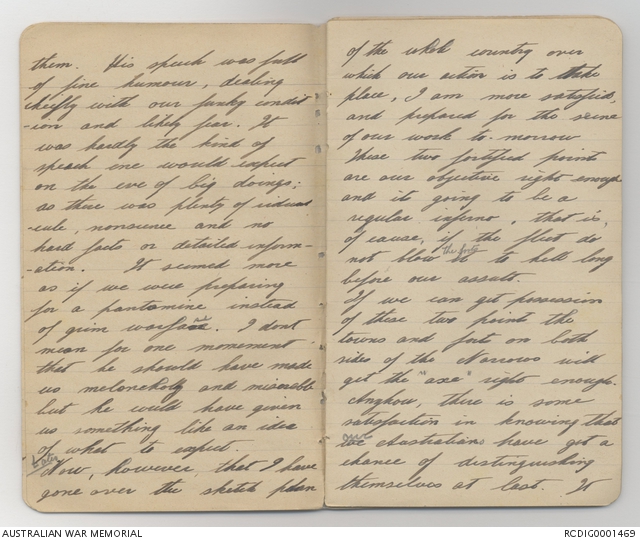 them. His speech was full
of fine humour, dealing
cheifly with our funky condit
-ion and likely fear. It
was hardly the kind of
speach one would expect
on the eve of big doings;
as there was plenty of ridicu
-cule, nonsence and no
hard facts or detailed inform-
-ation. It seemed more
as if we were preparing
for a pantomine instead
of grim warfare. I dont
mean for one monement
that he should have made
us melancholy and miserable
but he would have given
us something like an idea
of what to expect.
Later
Now, however, that I have
gone over the sketch plan
of the whole country over
which our action is to take
place, I am more satisfied,
and prepared for the scene
of our work to-morrow
These two fortified points
are our objective right enough
and its going to be a
regular inferno, that is,
of cause, if the fleet do
not blow the forts to hell long
before our assult.
If we can get possession
of these two points the
towns and forts on both
sides of the Narrows will
get the "axe" right enough.
Anyhow, there is some
satisfaction in knowing that
we Australians have got a
chance of distinguishing
themselves at last. It
AUSTRALIAN WAR MEMORIAL
RCDIG0001469